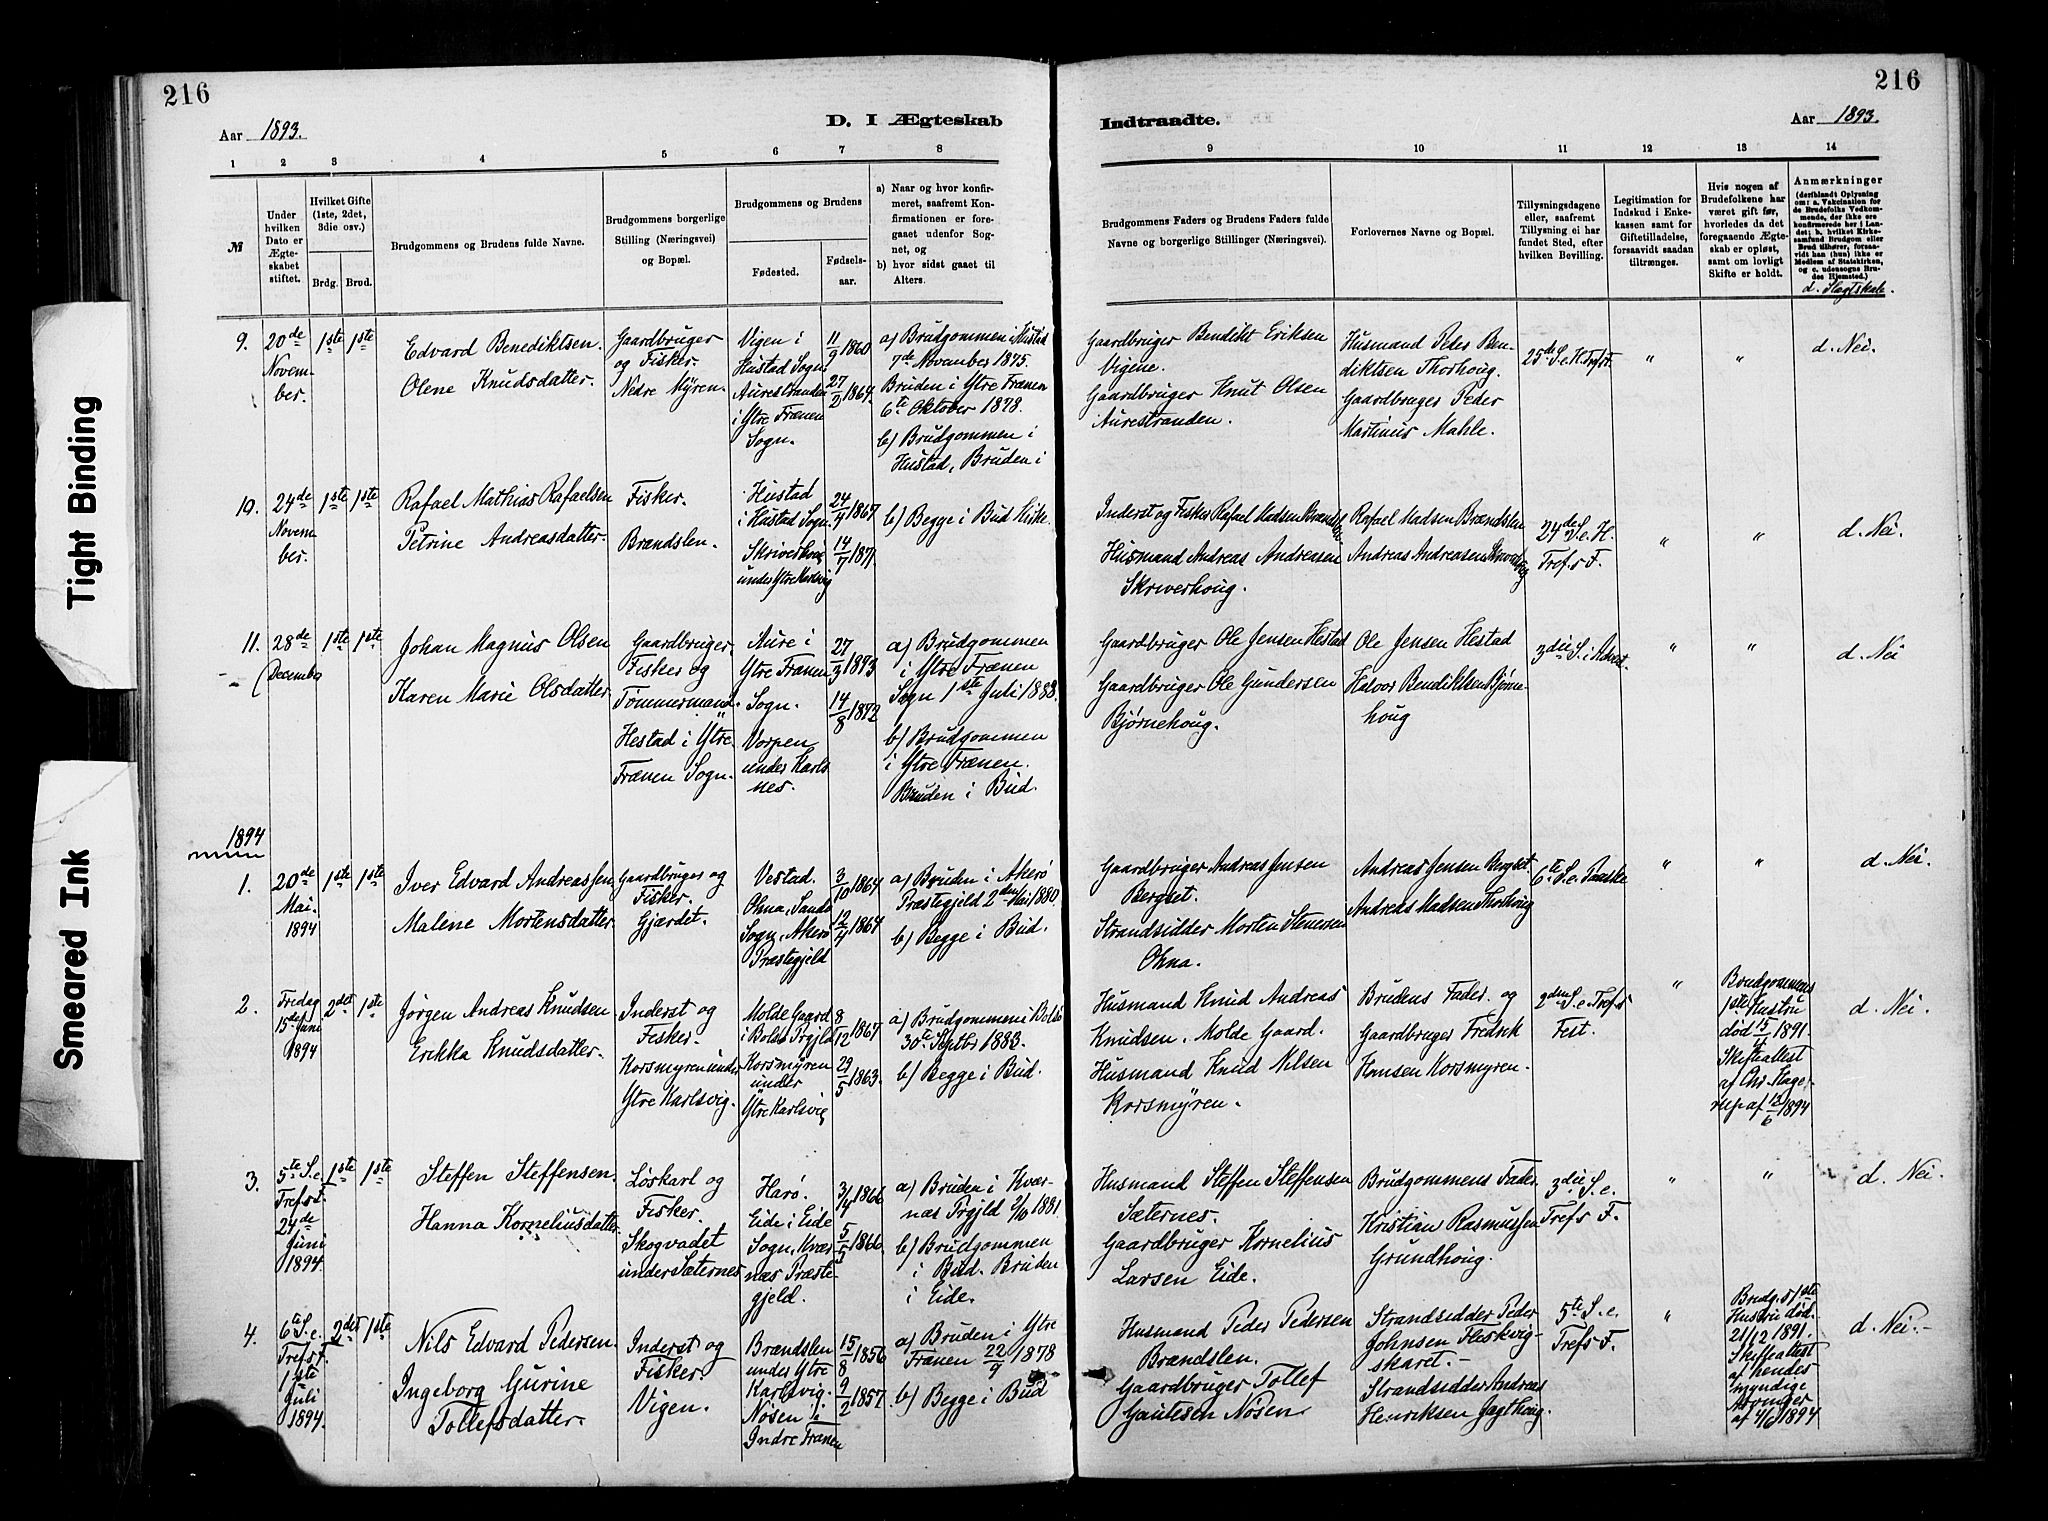 216
216
Aar 1893.
D. I Ægteskab
Indtraadte.
Aar 1893.
1 2 3 4 5 6 7 8
9 10 11 12 13 14
№
Under
hvilken
Dato er
Ægte-
skabet
stiftet.
Hvilket Gifte
(1ste, 2det,
3die osv.)
Brdg. Brud.
Brudgommens og Brudens fulde Navne.
Brudgommens borgerlige
Stilling (Næringsvei)
og Bopæl.
Brudgommens og Brudens
Fødested.
Fødsels-
aar.
a) Naar og hvor konfir-
meret, saafremt Kon-
firmationen er fore-
gaaet udenfor Sog-
net, og
b) hvor sidst gaaet til
Alters.
Brudgommens Faders og Brudens Faders fulde
Navne og borgerlige Stillinger (Næringsvei).
Forlovernes Navne og Bopæl.
Tillysningsdagene
eller, saafremt
Tillysning ei har
fundet Sted, efter
hvilken Bevilling.
Legitimation for
Indskud i Enke-
kassen samt for
Giftetilladelse,
forsaavidt saadan
tiltrænges.
Hvis nogen af
Brudefolkene har
været gift før,
hvorledes da det
foregaaende Ægte-
skab er opløst,
samt om lovligt
Skifte er holdt.
Anmærkninger
(deriblandt Oplysning
om: a. Vakcination for
de Brudefolks Vedkom-
mende, der ikke ere
konfirmerede her i Lan-
det; b. hvilket Kirke-
samfund Brudgom eller
Brud tilhører, forsaa-
vidt han (hun) ikke er
Medlem af Statskirken,
og c. udensogns Bru-
des Hjemsted.)
d. Slægtskab.
9.
20de
Novem-
ber.
1ste 1ste
Edvard Benediktsen.
Olene Knudsdatter.
Gaardbruger
og Fisker.
Nedre Myren.
Vigen i
Hustad Sogn
Aurestranden
i Ytre Frænen
Sogn.
11/9 1860
27/2 1864.
a) Brudgommen i Hustad
7de November 1875.
Bruden i Ytre Frænen
6te Oktober 1878.
b) Brudgommen i
Hustad, Bruden i
Gaardbruger Bendikt Eriksen
Vigene.
Gaardbruger Knut Olsen
Aurestranden.
Husmand Peder Ben-
diktsen Thorhoug.
Gaardbruger Peder
Martinus Mahle.
25de S. e. H. Trefst.
"
"
d. Nei.
10.
24de
Novem-
ber.
1ste 1ste
Rafael Mathias Rafaelsen
Petrine Andreasdatter.
Fisker.
Brændslen.
Hustad
i Hustad Sogn.
Skriverhoug
under Ytre Karlsvig
24/4 1867
14/7 1871.
b) Begge i Bud Kirke.
Inderst og Fisker Rafael Madsen Brændslen
Husmand Andreas Andreasen
Skriverhoug.
Rafael Madsen Brændslen
Andreas Andreasen Skriverhoug
24de S. e. H.
Trefs F.
"
"
d. Nei.
11.
28de
December
1ste 1ste
Johan Magnus Olsen
Karen Marie Olsdatter.
Gaardbruger
Fisker og
Tømmermand.
Hestad i Ytre
Frænen Sogn.
Aure i
Ytre Frænen
Sogn.
Vorpen
under Karls-
nes.
27/3 1873
14/8 1872
a) Brudgommen
i Ytre Frænen
Sogn 1ste Juli 1888.
b) Brudgommen
i Ytre Frænen.
Bruden i Bud.
Gaardbruger Ole Jensen Hestad
Gaardbruger Ole Gundersen
Bjørnehoug.
Ole Jensen Hestad
Halvor Bendiktsen Bjørne-
houg
3die S. i Advent.
"
"
d. Nei
1894
1.
20de
Mai.
1894
1ste 1ste
Iver Edvard Andreassen
Malene Mortensdatter.
Gaardbruger og
Fisker.
Gjærdet.
Vestad.
Ohna, Sands
Sogn, Akerø
Præstegjeld
3/10 1864
12/4 1864
a) Bruden i Akerø
Præstegjeld 2den Mai 1880.
b) Begge i Bud.
Gaardbruger Andreas Jensen
Bergset.
Strandsidder Morten Stenersen
Ohna.
Andreas Jensen Bergset.
Andreas Madsen Thorhoug
6te S. e. Paaske
"
"
d. Nei.
2.
Fredag
15de Juni
1894
2det 1ste
Jørgen Andreas Knudsen
Erikka Knudsdatter.
Inderst og
Fisker.
Korsmyren under
Ytre Karlsvig.
Molde Gaard
i Bolsø Prgjld
Korsmyren
under
Ytre Karlsvig
8/12 1867
29/5 1863.
a) Brudgommen i Bolsø
30te Septbr 1883.
b) Begge i Bud.
Husmand Knud Andreas
Knudsen. Molde Gaard.
Husmand Knud Nilsen
Korsmyren.
Brudens Fader. og
Gaardbruger Fredrik
Hansen Korsmyren.
2den S. e. Trefs
Fest.
"
Brudgommens
1ste Hustru
død 15/4 1891.
Skifteattest
af
af 13/6 1894
d. Nei.
3.
5te S. e.
Trefs F.
24de
Juni
1894.
1ste 1ste
Steffen Steffensen.
Hanna Korneliusdatter.
Løskarl og
Fisker.
Skogvadet
under Sæternes
Harø.
Eide i Eide
Sogn, Kvær-
næs Præste-
gjeld.
3/4 1866
5/5 1866.
a) Bruden i Kvær-
næs Prgjld 2/10 1881.
b) Brudgommen
i Bud. Bruden
i Eide.
Husmand Steffen Steffensen
Sæternes.
Gaardbruger Kornelius
Larsen Eide.
Brudgommens Fader
Kristian Rasmussen
Grundhoug.
3die S. e.
Trefs F.
"
"
d. Nei.
4.
6te S. e.
Trefs F.
1ste
Juli
1894.
2det 1ste
Nils Edvard Pedersen
Ingeborg Gurine
Tollefsdatter.
Inderst og
Fisker.
Vigen.
Brændslen
under Ytre
Karlsvig.
Nøsen i
Indre Frænen
15/8 1856
9/2 1857.
a) Bruden i Ytre
Frænen 22/9 1878
b) Begge i Bud
Husmand Peder Pedersen
Brændslen.
Gaardbruger Tollef
Gautesen Nøsen
Strandsidder Peder
Johnsen Fleskvig-
skaret.-
Strandsidder Andreas
Henriksen Jagthoug.
5te S. e.
Trefs F.
"
Brudg.s 1ste
Hustru død.
21/12 1891.
Skifteattest
af hendes
myndige
Arvinger
af 4/6 1894
d. Nei.-
Tight Binding
Smeared Ink